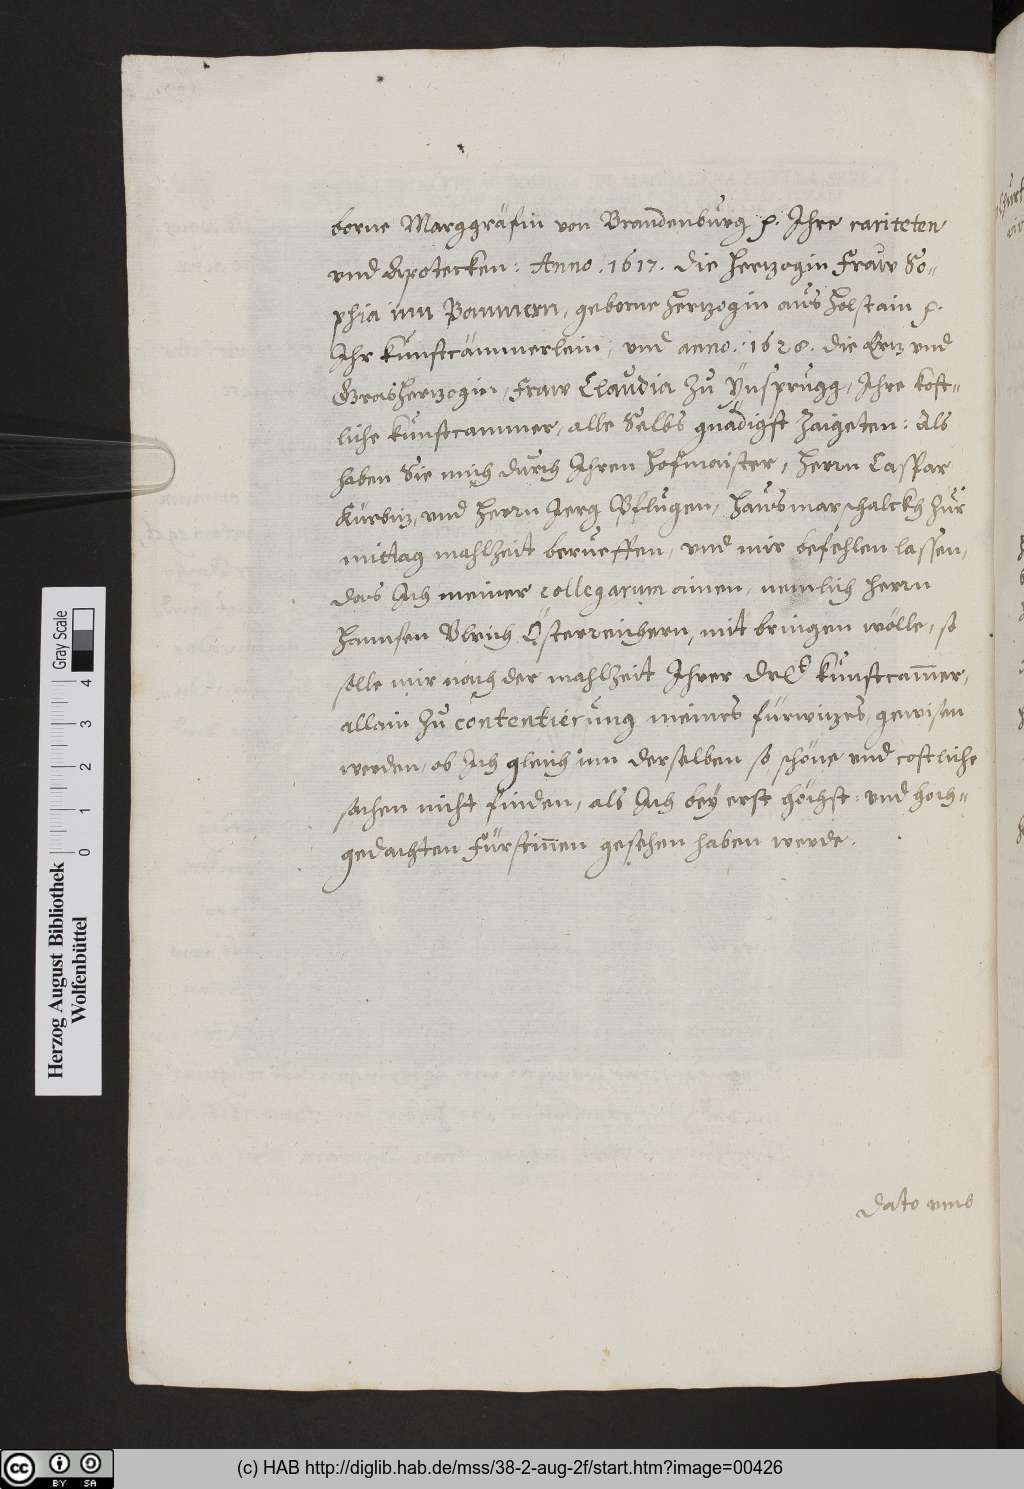 borne Marggräfin von Brandenburg ꝛ. Ihre rariteten
vnd Apotecken: Anno. 1617. die Hertzogin Fraw So-
phia inn Pommern, geborne Hertzogin aus Holstain ꝛ.
Ihr kunstcämmerlein, vnd anno. 1628. die Ertz vnd
Groshertzogin, Fraw Claudia zu Ÿnsprugg, Ihre kost-
liche kunstcammer, alle Selbs gnädigst zaigeten: Als
haben Sie mich durch Ihren Hofmaister, Herrn Caspar
Kürbitz, vnd Herrn Jerg Pflügen, Hausmarschalckh zur
mittag mahlzeit berueffen, vnd mir befehlen lassen,
das Ich meiner collegarum ainen, nemlich Herrn
Hannsen Vlrich Österreichern, mit bringen wölle, so
solle mir nach der mahlzeit Ihrer Drlt kunstcam̄er,
allain zu contentierung meines fürwitzes, gewisen
werden, ob Ich gleich inn derselben so schöne vnd costliche
sachen nicht finden, als Ich beÿ erst höchst: vnd hoch-
gedachten Fürstin̄en gesehen haben werde.
Dato vmb
Herzog August Bibliothek
Wolfenbüttel
Gray Scale
0 1 2 3 4
cc BY SA
(c) HAB http://diglib.hab.de/mss/38-2-aug-2f/start.htm?image=00426